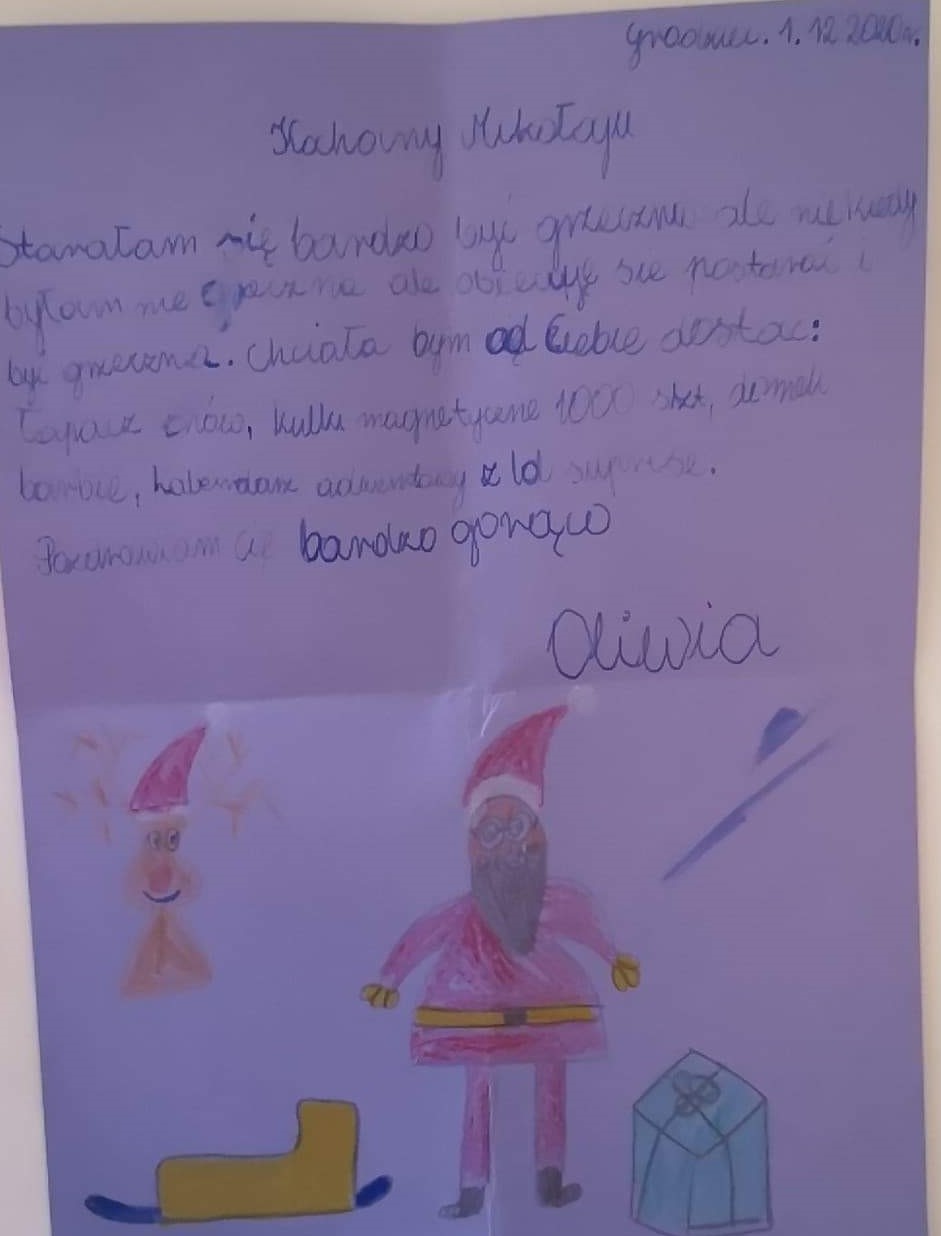 1.12 2020r.
Kochany Mikołaju
Starałam się bardzo być grzeczna ale niekiedy
byłam nie grzeczna ale obiecuję sie postarać i
być grzeczna. Chciała bym od Ciebie dostac:
Łapacz snów, kulki magnetyczne 1000 szt, domek
barbie, kalendarz adwentowy z lol suprise.
Pozdrawiam Cię bardzo gorąco
Oliwia